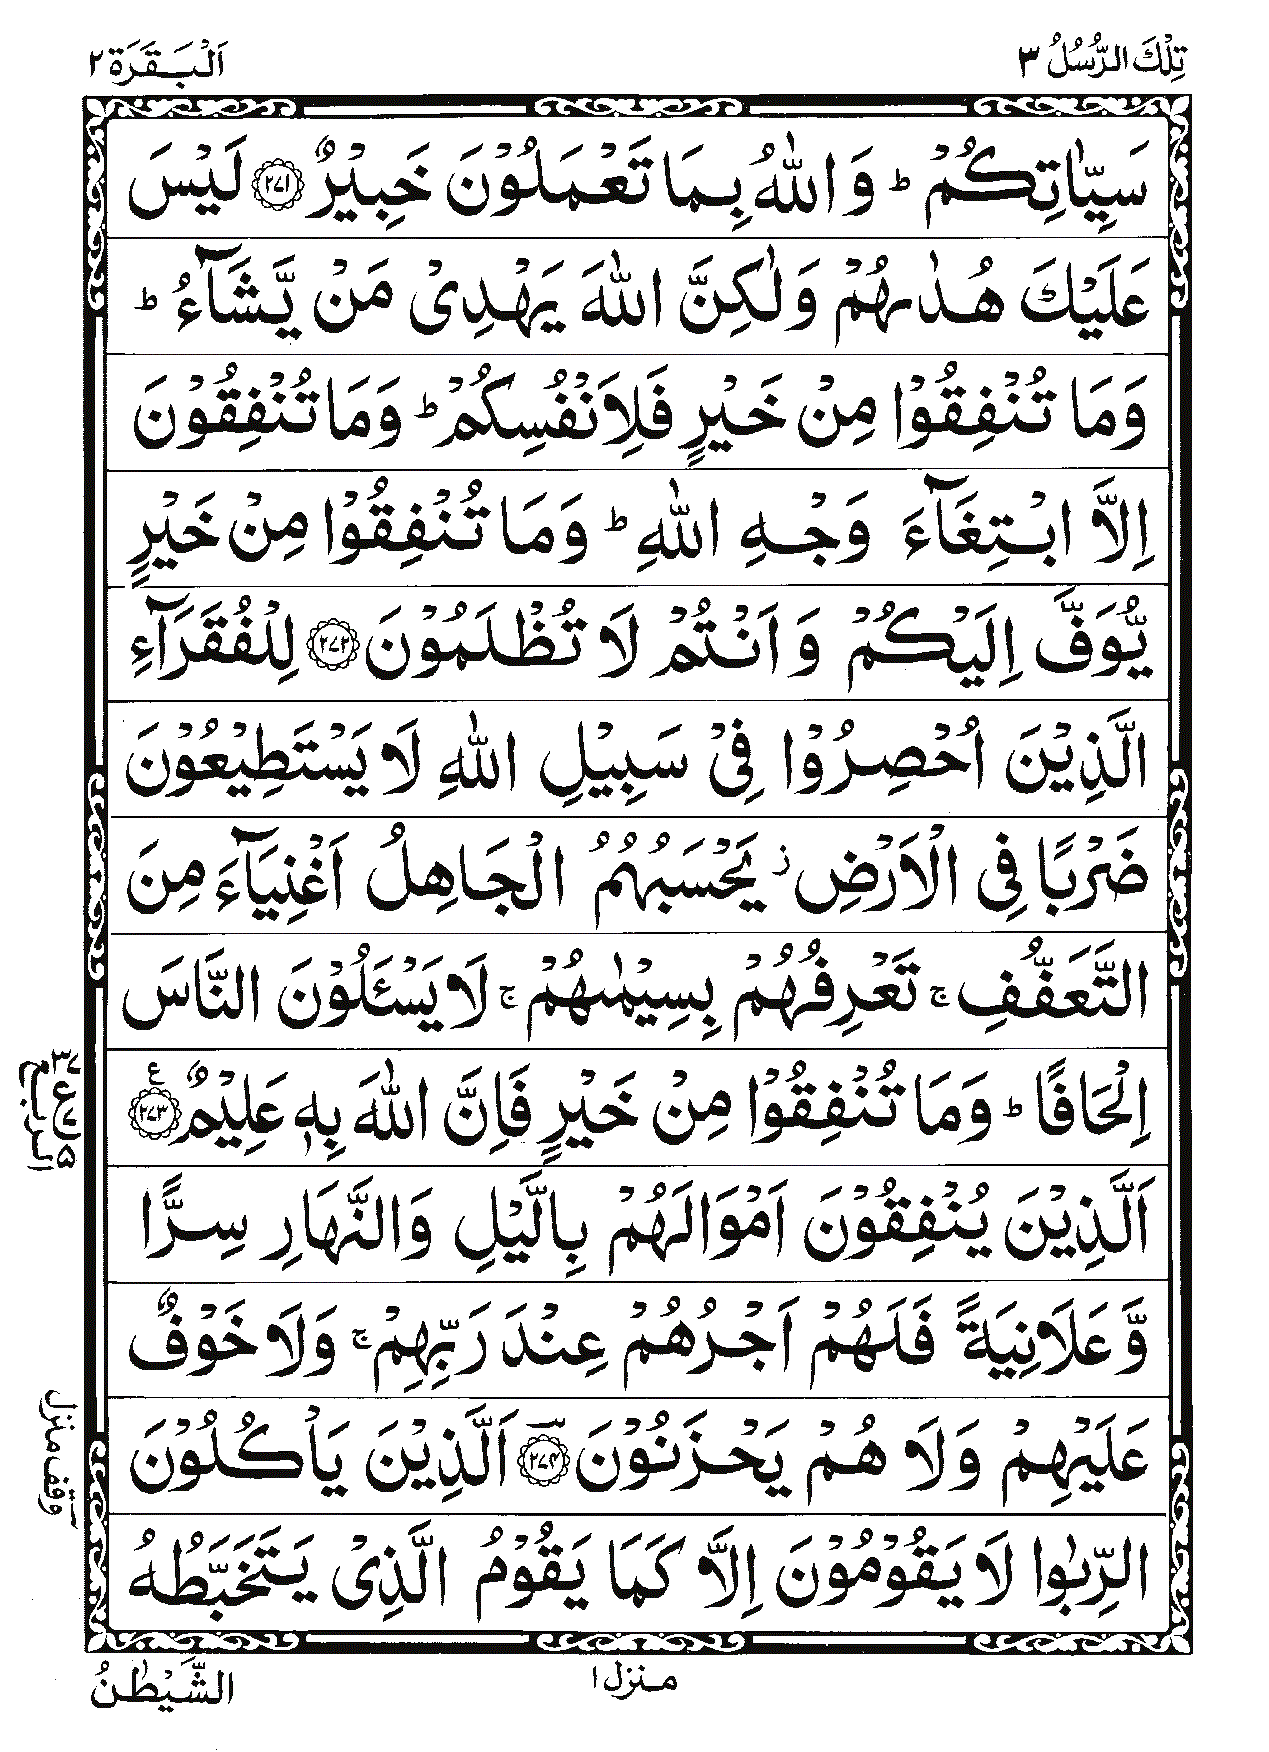 تِلْكَ الرُّسُلُ ٣
اَلْبَقَرَة ٢
سَيِّاٰتِكُمْ ؕ وَ اللّٰهُ بِمَا تَعْمَلُوْنَ خَبِيْرٌ ﴿۲۷۱﴾ لَيْسَ
عَلَيْكَ هُدٰىهُمْ وَلٰكِنَّ اللّٰهَ يَهْدِیْ مَنْ يَّشَآءُ ؕ
وَمَا تُنْفِقُوْا مِنْ خَيْرٍ فَلِاَنْفُسِكُمْ ؕ وَمَا تُنْفِقُوْنَ
اِلَّا ابْتِغَآءَ وَجْهِ اللّٰهِ ؕ وَمَا تُنْفِقُوْا مِنْ خَيْرٍ
يُّوَفَّ اِلَيْكُمْ وَ اَنْتُمْ لَا تُظْلَمُوْنَ ﴿۲۷۲﴾ لِلْفُقَرَآءِ
الَّذِيْنَ اُحْصِرُوْا فِیْ سَبِيْلِ اللّٰهِ لَا يَسْتَطِيْعُوْنَ
ضَرْبًا فِی الْاَرْضِ ز يَحْسَبُهُمُ الْجَاهِلُ اَغْنِيَآءَ مِنَ
التَّعَفُّفِ ۚ تَعْرِفُهُمْ بِسِيْمٰىهُمْ ۚ لَا يَسْـَٔلُوْنَ النَّاسَ
اِلْحَافًا ؕ وَمَا تُنْفِقُوْا مِنْ خَيْرٍ فَاِنَّ اللّٰهَ بِهٖ عَلِيْمٌ ﴿۲۷۳﴾ ع
اَلَّذِيْنَ يُنْفِقُوْنَ اَمْوَالَهُمْ بِالَّيْلِ وَالنَّهَارِ سِرًّا
وَّ عَلَانِيَةً فَلَهُمْ اَجْرُهُمْ عِنْدَ رَبِّهِمْ ۚ وَلَا خَوْفٌ
عَلَيْهِمْ وَلَا هُمْ يَحْزَنُوْنَ ﴿۲۷۴﴾ اَلَّذِيْنَ يَاْكُلُوْنَ
الرِّبٰوا لَا يَقُوْمُوْنَ اِلَّا كَمَا يَقُوْمُ الَّذِیْ يَتَخَبَّطُهُ
۳۷
ع
۵
الربع
وقف منزل
منزل ١
الشَّيْطٰنُ